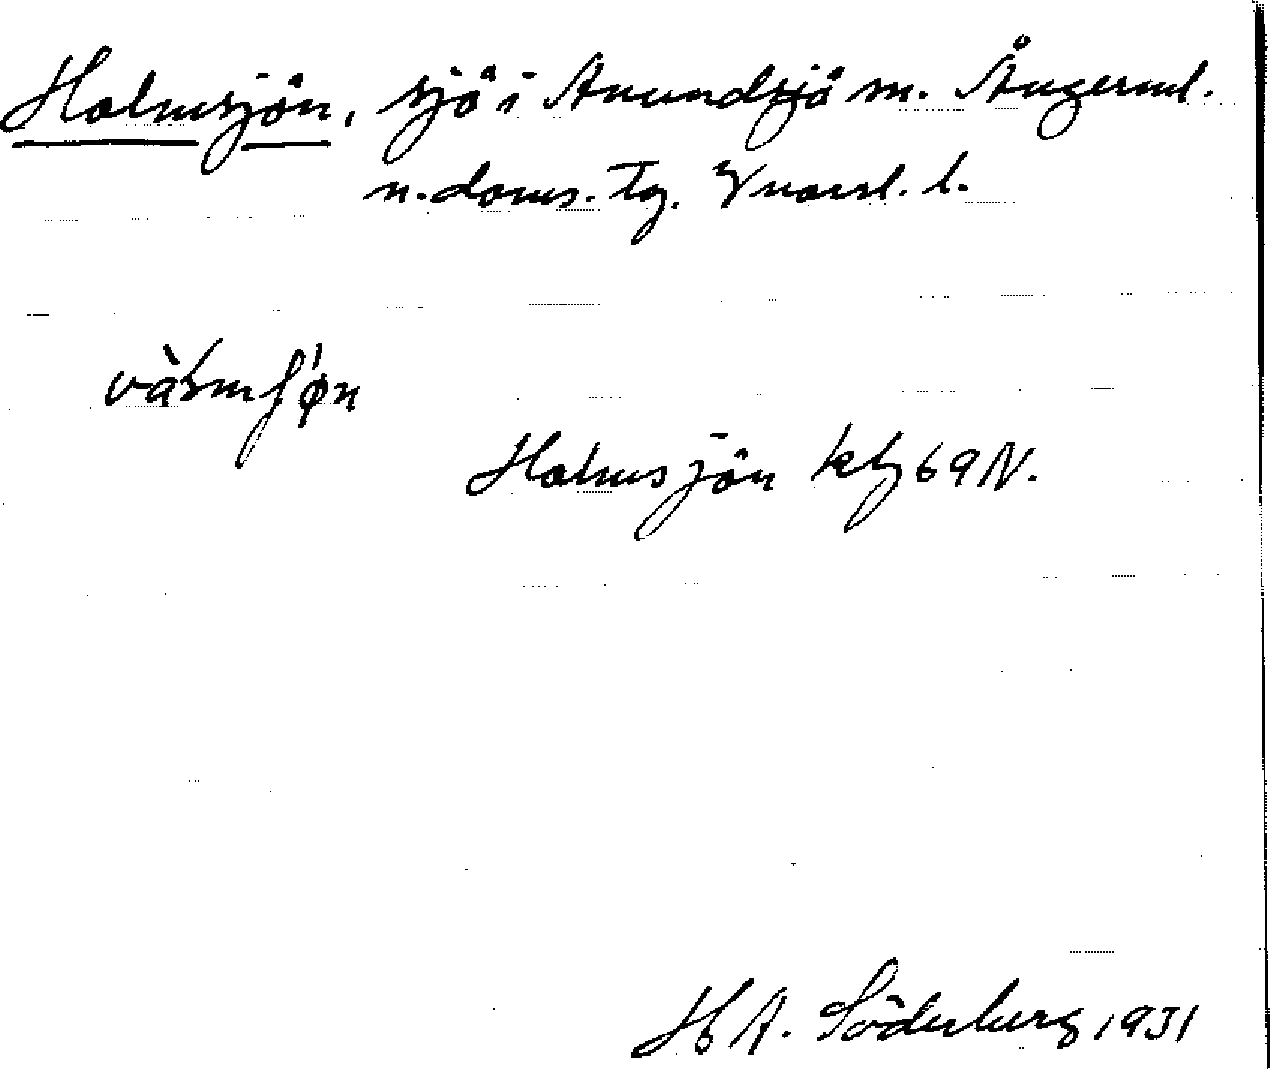 Holmsjön, sjö i Anundsjö sn. Ångerml.
n. doms. Tg. Vnorrl. l.
Holmsjön kbl 69 N.
H A. Söderberg 1931